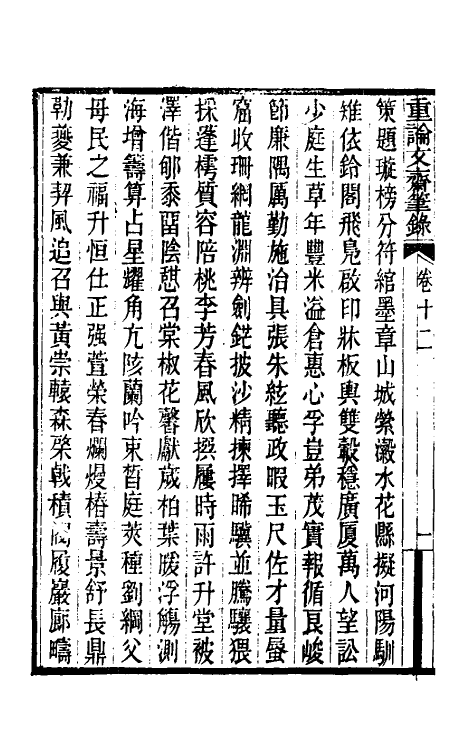 重論文齋筆錄 卷十二 一
策題璇榜分符綰墨章山城縈瀫水花縣擬河陽馴
雉依鈴閣飛鳧啟印牀板輿雙轂穩廣厦萬人望訟
少庭生草年豐米溢倉惠心孚豈弟茂實報循良峻
節廉隅厲勤施治具張朱絃聽政暇玉尺佐才量蜃
窟收珊網龍淵辨劍鋩披沙精揀擇睎驥並騰驤猥
採蓬樗質容陪桃李芳春風欣撰屨時雨許升堂被
澤偕郇黍留陰憇召棠椒花馨獻歲柏葉朘浮觴測
海增籌算占星耀角亢陔蘭吟束晳庭莢種劉綱父
母民之福升恒仕正强萱榮春爛熳椿壽景舒長鼎
勒夔兼契風追召與黃崇轅森棨戟積閥履巖廊疇